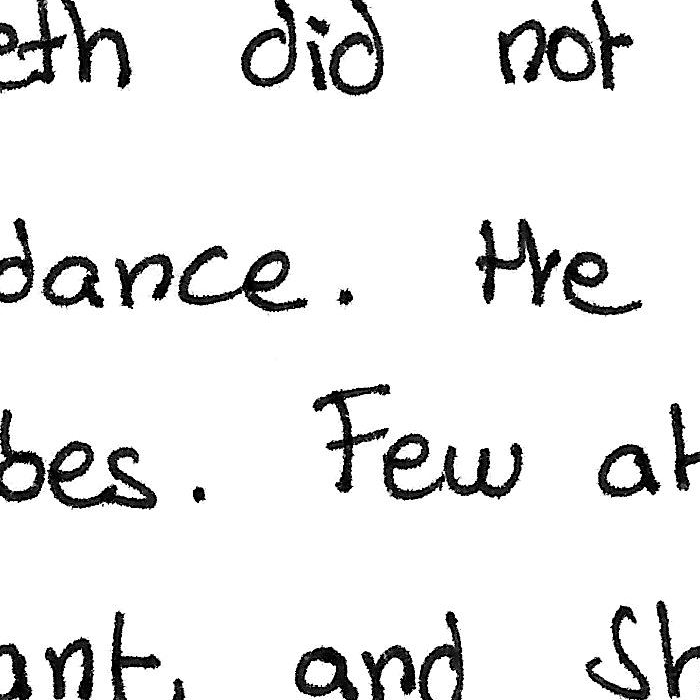 eth did not
dance. He
bes. Few at
ant, and Sh